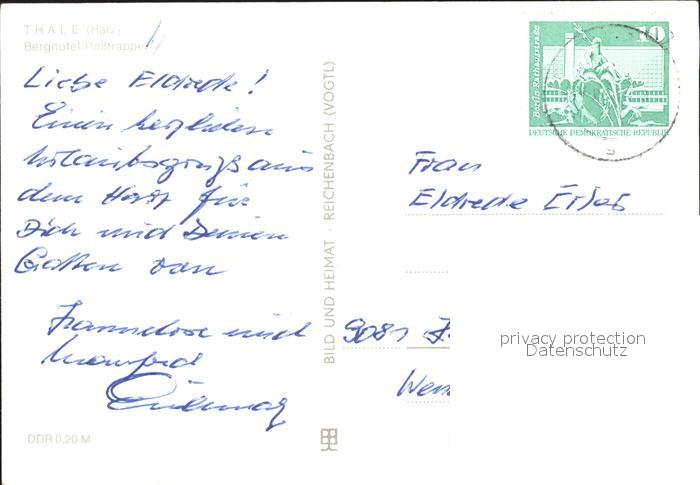 THALE (Harz)
Berghotel Roßtrappe
Liebe
Einen herzlichen
Urlaubsgruß aus
dem Harz für
Dich und Deinen
Gatten von
Hannelore und
Manfred
DDR 0,20 M
BILD UND HEIMAT · REICHENBACH (VOGTL)
10
Berlin, Rathausstraße
DEUTSCHE DEMOKRATISCHE REPUBLIK
Frau
9081
privacy protection
Datenschutz